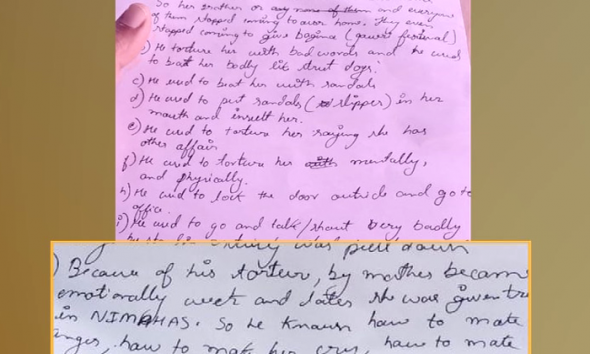 So her brother or any none of them and everyone
of them stopped coming to our home. They even
stopped coming to give bagina (gowri festival)
He torture her with bad words and he used
to beat her badly lik street dogs.
c) He used to beat her with sandals
d) He used to put sandals (slipper) in her
mouth and insult her.
e) He used to torture her saying she has
other affair
f) He used to torture her with mentally,
and physically.
h) He used to lock the door outside and go to
office.
i) He used to go and talk/shout very badly
was pull down
) Because of his torture, by mother becam
emotionally week and later she was given tre
in NIMHAS. So he knows haw to mate
haw to mak her cry, haw to mate